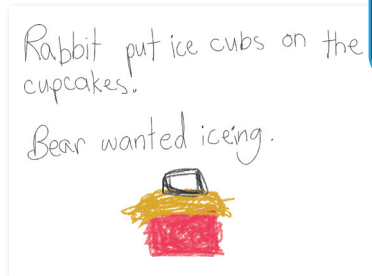 Rabbit put ice cubs on the
cupcakes.
Bear wanted iceing.